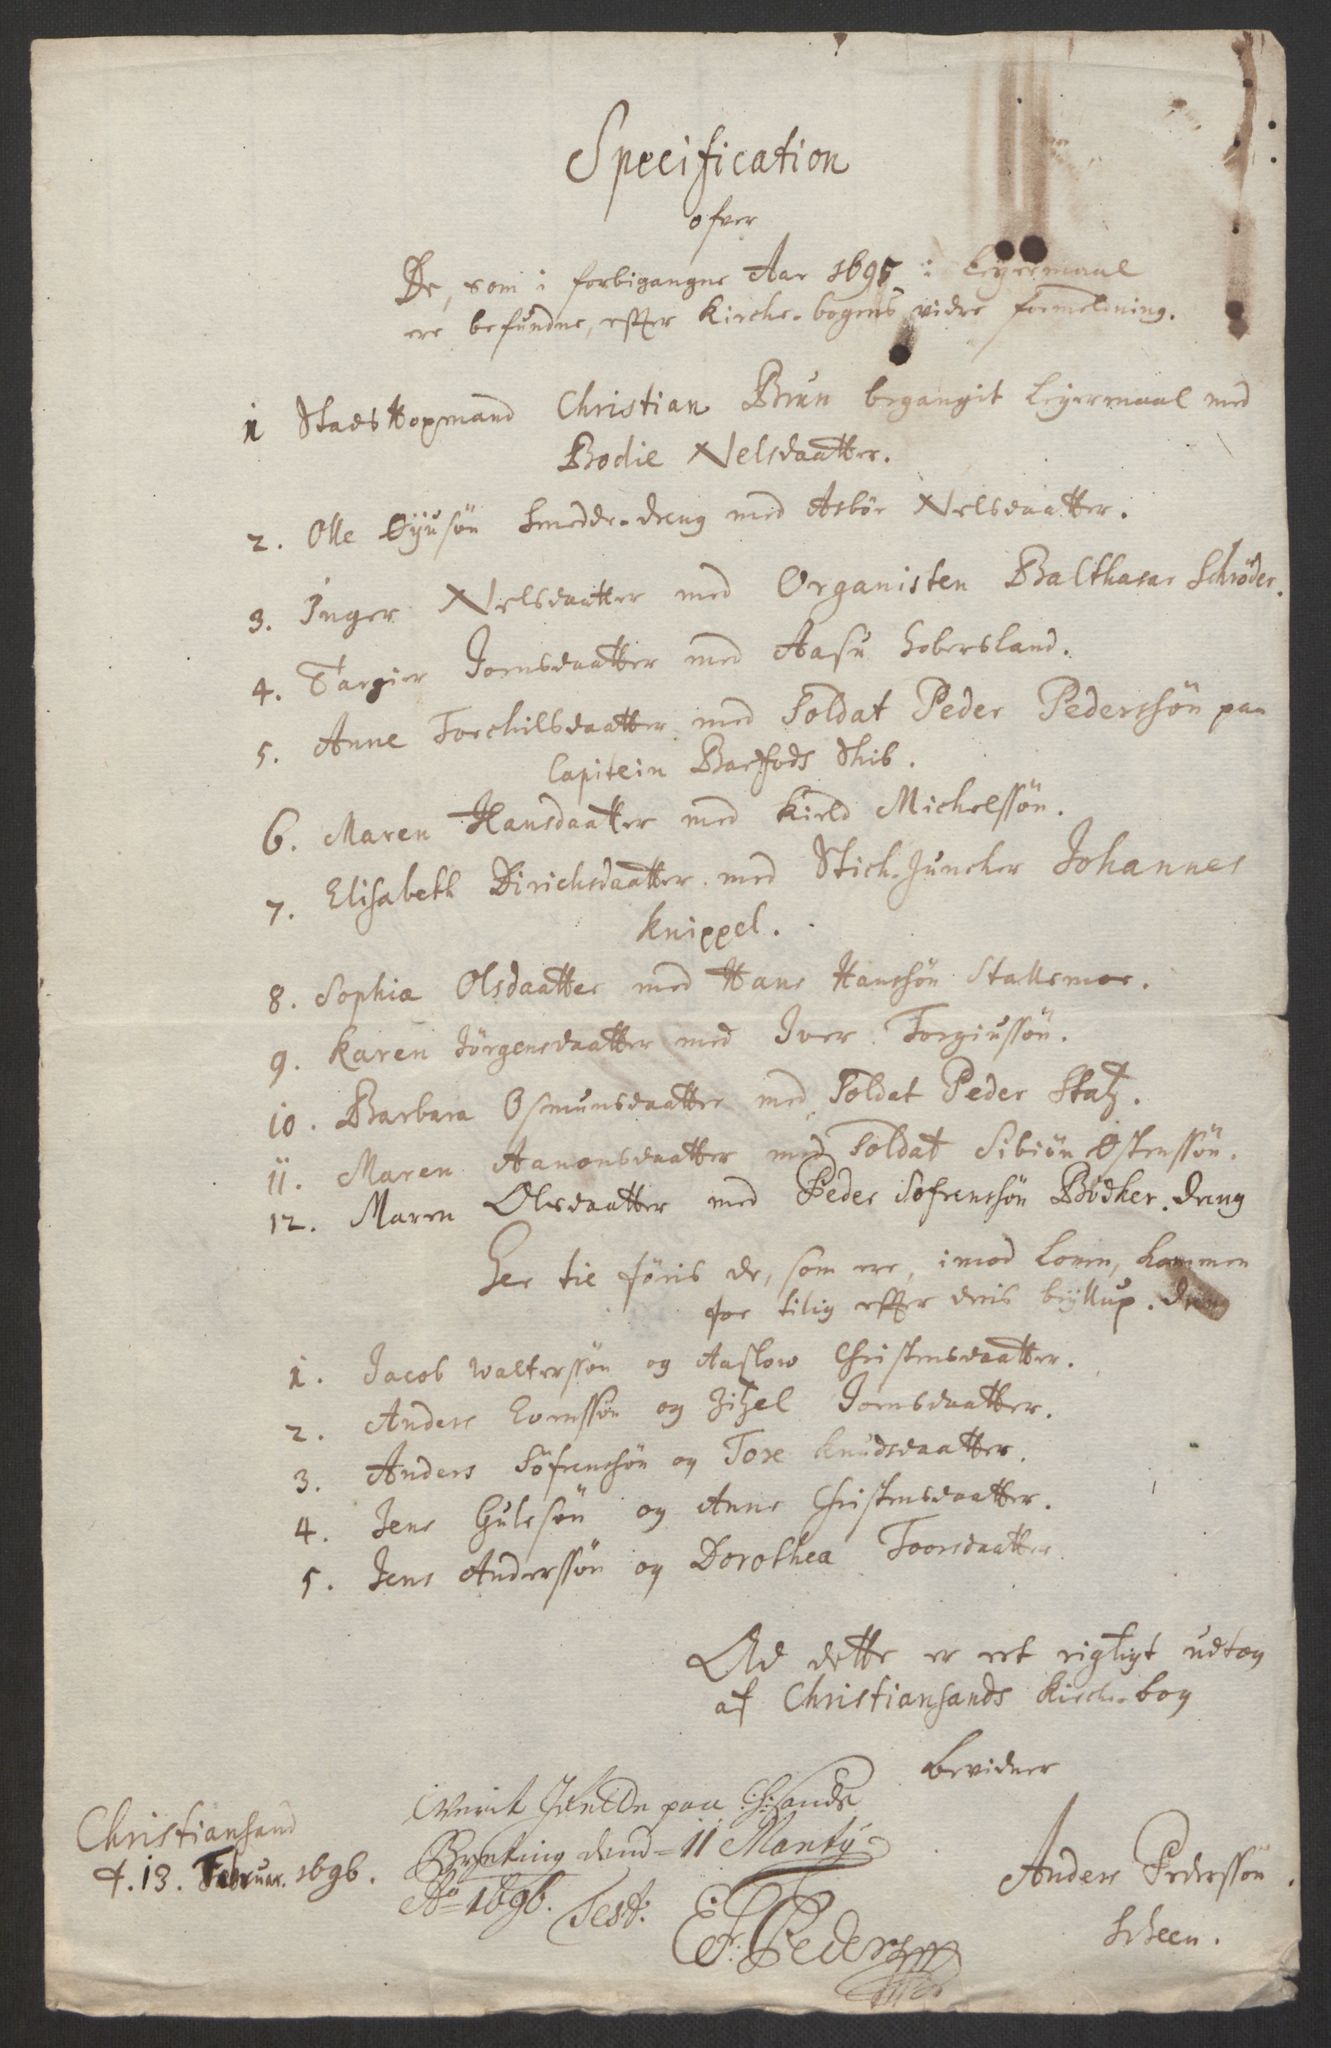 Specification
ofver
De, som i forbigangne Aar 1695 i Leyermaal
ere befundne, effter Kirche-bogens vidre formeldning.
1 Stads Hopmand Christian Brun begangit Leyermaal med
Bodil Nelsdaatter.
2. Olle Øyusøn Smedde-dreng med Asbör Nelsdaatter.
3. Inger Nelsdaatter med Organisten Balthasar Schrøder.
4. Targier Joensdaatter med Aasu
5. Anne Torchilsdaatter med Soldat Peder Pederssön paa
Capitein Barfods Skib.
6. Maren Hansdaatter med Kield Michelssön.
7. Elisabeth Dirichsdaatter med Stich-Juncher Johannes
Knippel.
8. Sophia Olsdaatter med Hans Hanssön Stallemoe.
9. Karen Jörgensdaatter med Iver Torgiussön.
10. Barbara Osmunsdaatter med Soldat Peder Statz.
11. Maren Aanonsdaatter med Soldat Sibiön Østenssön.
12. Maren Olsdaatter med Peder Sofrenssön Bödker-dreng
Her til føris de, som ere, imod Loven, kommen
for tilig effter deris bryllup.
1. Jacob Walterssøn og Aaslow Christensdaatter.
2. Anders Evenssøn og Zitzel Joensdaatter.
3. Anders Söfrenssön og Tore Knudsdaatter.
4. Jens Gulesøn og Anne Christensdaatter.
5. Jens Anderssön og Dorothea Toorsdaatter
Ad dette er ret rigtigt udtog
af Christiansands Kirche-bog
bevidner
Christiansand
d. 13. Februar. 1696.
Værit Jrette paa Ch:sands
Byeting dend 11 Marty
Ao 1696. Test:
Pederss
Anders Pederssøn
Scheen.